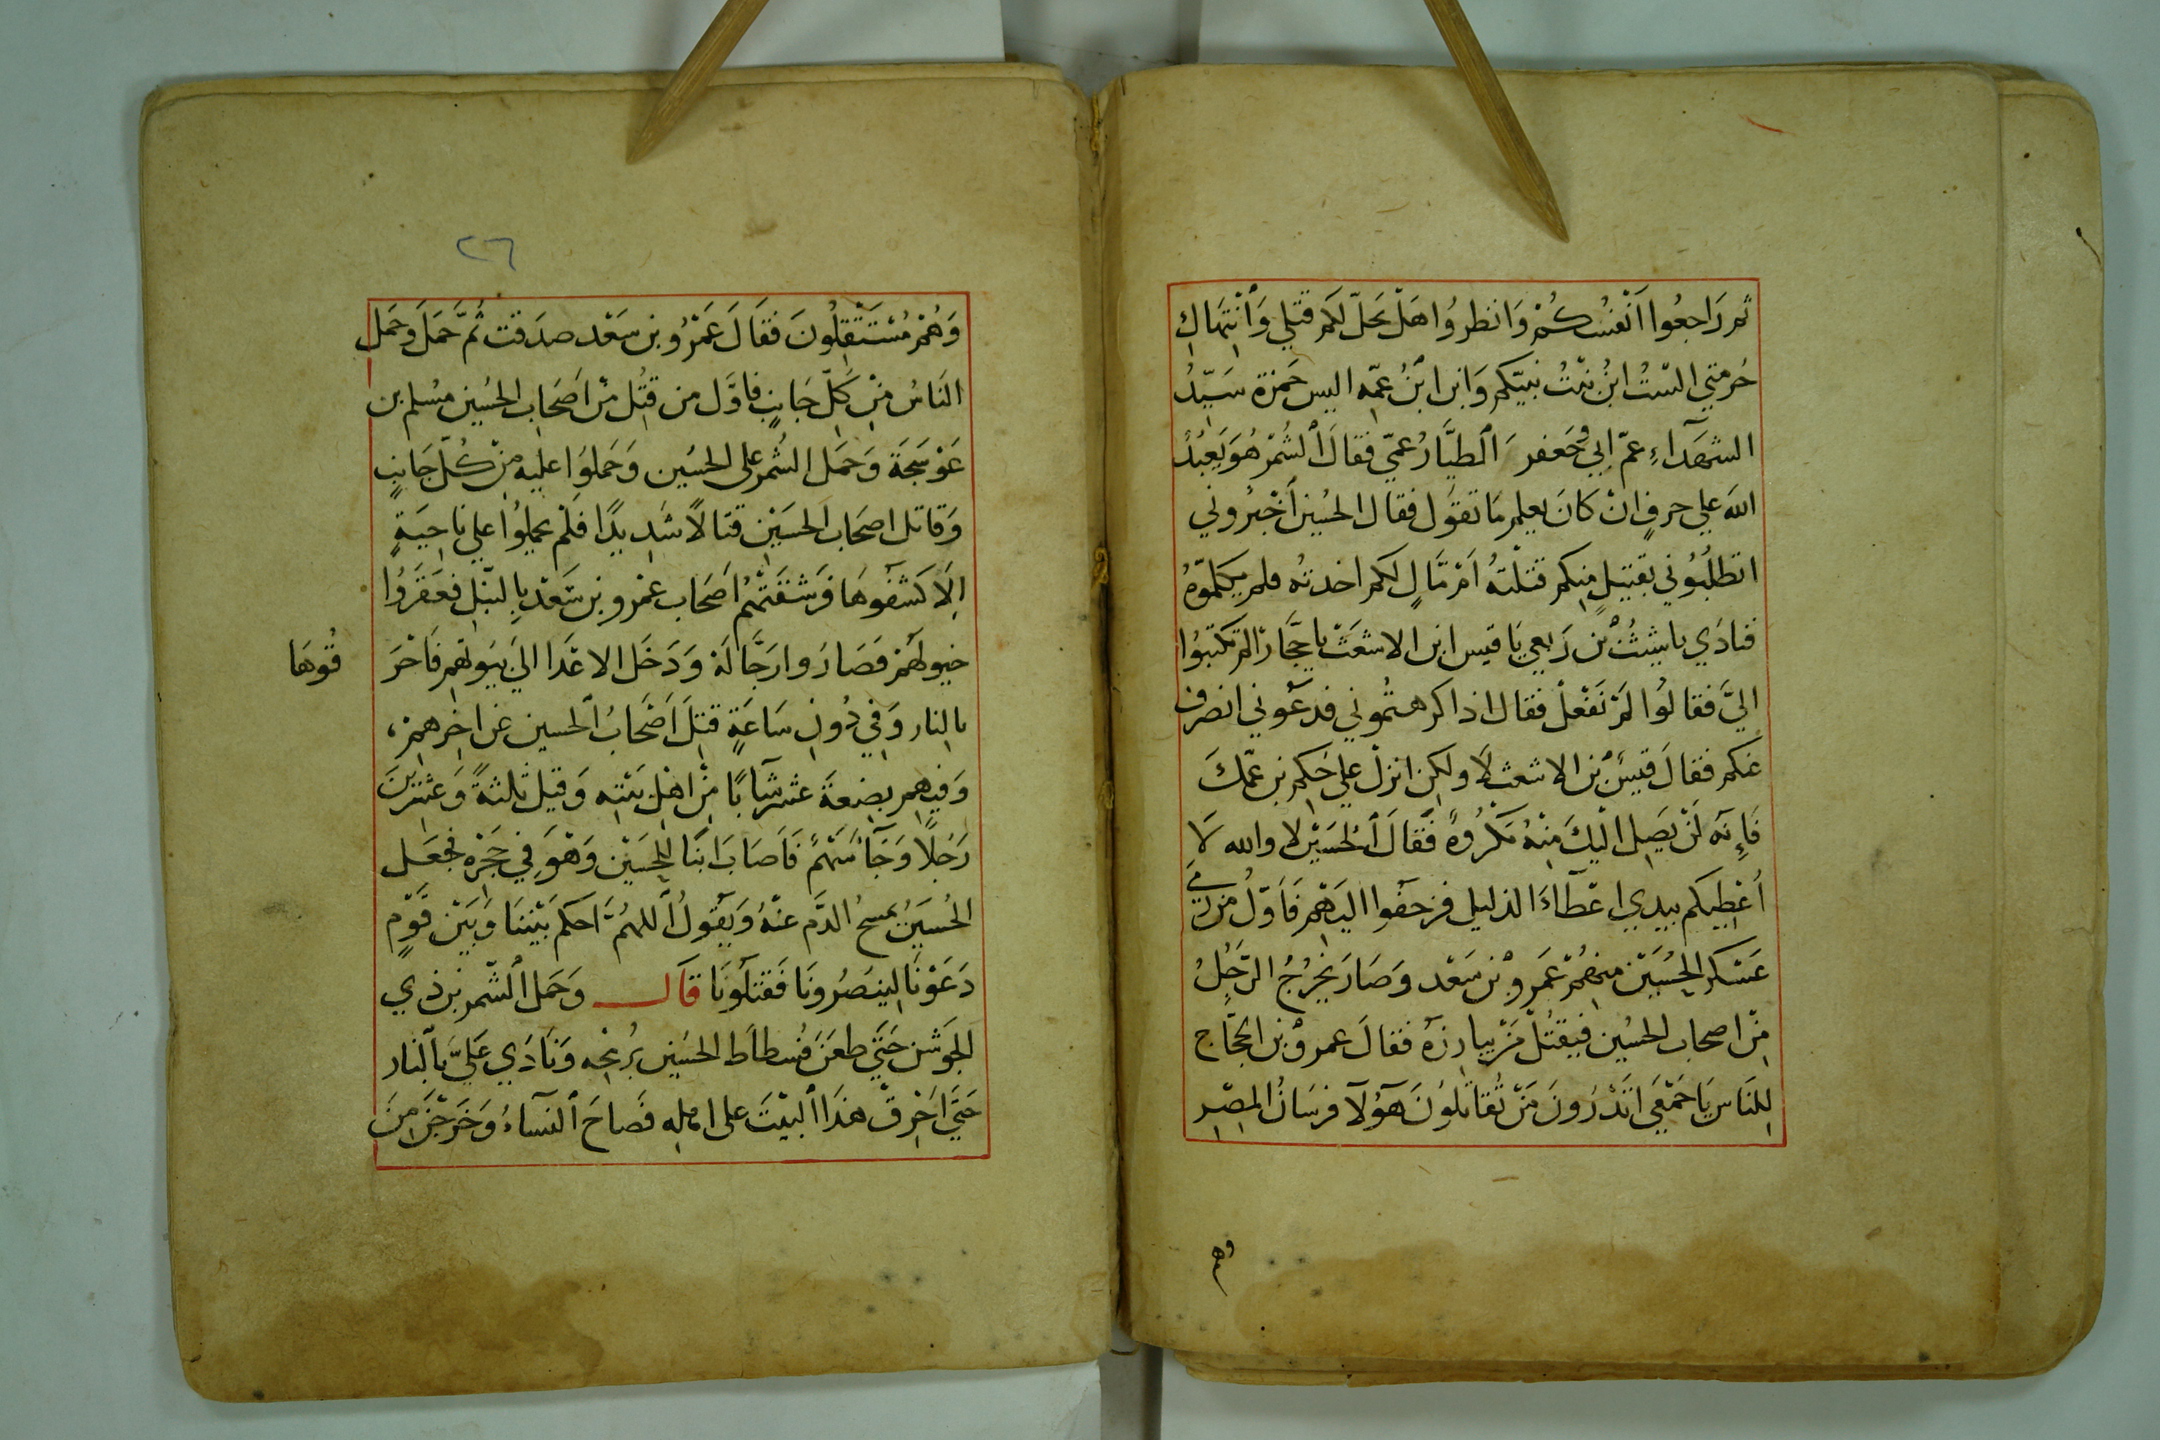 ثم رَاجعُوا اَنْفسُكُمْ وَانظروُا هَلْ يحَلّ لكم قتلي وَاَنْتِهَاك
حُرمتي السْتُ ابنُ بنْتُ نبيّكم وَابن ابْنُ عمّه اليس حَمزة سَيّدُ
الشهَدآءِ عمّ ابي وَجَعفر اَلطيَّارُ عمّي فقَالَ الشمْرُ هُوَ يَعبُدُ
الله علي حرفٍ انْ كَانَ يعلم مَا تقوُل فقال الحسُين اَخْبرُوني
اتطلبُوُني بقتيلٍ منِكم قتَلْتهُ اَمْ مَّالٍ لكم اخدته فلم يكلّموُهُ
فنادَي يا شبثُ بْن رَبعي يَا قيس ابن الاشعَثْ يا حجَّار الم تكتبُوا
اليَّ فقالُوا لمْ نَفْعَلْ فقال اذا كرهتُموني فدَعَوُني انصرف
عنكم فقالَ قيسُ بْن الاشعث لَا ولٰكن انزلْ علي حُكم بن عمّكَ
فَاِنَه لَنْ يصَِل اليْكَ مِنهُ مَكرُوهُ فَقَالَ اَلحُسَيْن لا والله لَا
اُعْطِيكم بيدي اعْطآءَ الذليل فزحفوُا اليَهْم فَاوَّلُ من رمَي
عَسْكر الحُسَيْن منهُمْ عَمرو بْن سَعْد وَصَارَ يخرُجُ الرّجُلُ
مِنْ اصحاب الحسُين فيَقتُلْ مَنْ يبارزهُ فقالَ عمروُ بْن الحجّاج
لِلنَاس يَا حَمْقَي اتَدْرُونَ مَنْ تُقاتلوُنَ هَؤُلآ فرسَانُ المِصْرِ
وهم
٢٦
وَهُمْ مُسْتَقْتِلُونَ فقالَ عَمْرُو بن سَعْد صدَقت ثُمَّ حَمَلَ وحَمل
النَاسُ مِنْ كلّ جَانبٍ فاوَّل من قتُل مْن اَصحَاب الحسُين مسُلم بن
عَوْسَجَة وَحمَل الشُمر على الحسُين وَحَملوُا عليْه مِنْ كُلّ جَانبٍ
وَقاتل اصحَاب الحسَيْن قتالاً شَديدًا فلم يحملوُا علي نَاحِيَةٍ
اِلَا كَشَفوُهَا فرَشقَتْهُمُ اَصَحاب عمْرو بن سَعْد بِالنبْل فعَقَروُا
خيولَهُمْ فَصَارَوا رجَّالَة وَدَخَل الاعْدَا الَي بيَوُتهم فَاَحْرَ
قُوهَا
بالنار وَفي دُونِ سَاعَةٍ قتلَ اَصْحَابُ اَلحسين عَن اٰخِرهمْ،
وَفيهِم بضِعةَ عشر شَآبًا مِنْ اهْل بَيْتِه وَقيلَ ثلثةً وَعشْرينَ
رَجُلاً وَجَآ سَهْمُ فَاَصَابَ ابنًا لِلحُسَيْن وَهْوَ فِي حَجْره فجعَل
الحُسَينُ يمسحُ الدَم عنْهُ وَيقَولُ اَللهُمَّ احكم بَيْنَنَا وَبَيْن قَوْمٍ
دَعَوْنَا لِينصَرُونَا فَقتلَوُنَا قال وَحَمل اَلشّمر بن ذي
الجوَشْن حَتيَّ طعَنَ فسُطاَط الحسُين برُمحِه وَنَادَي عَليَّ باْلنار
حَتيَّ اُحَرِّقْ هذَا اَلبيْتَ على اهلِه فَصاحَ اَلنسآءُ وَخرَجْنَ مِنَ